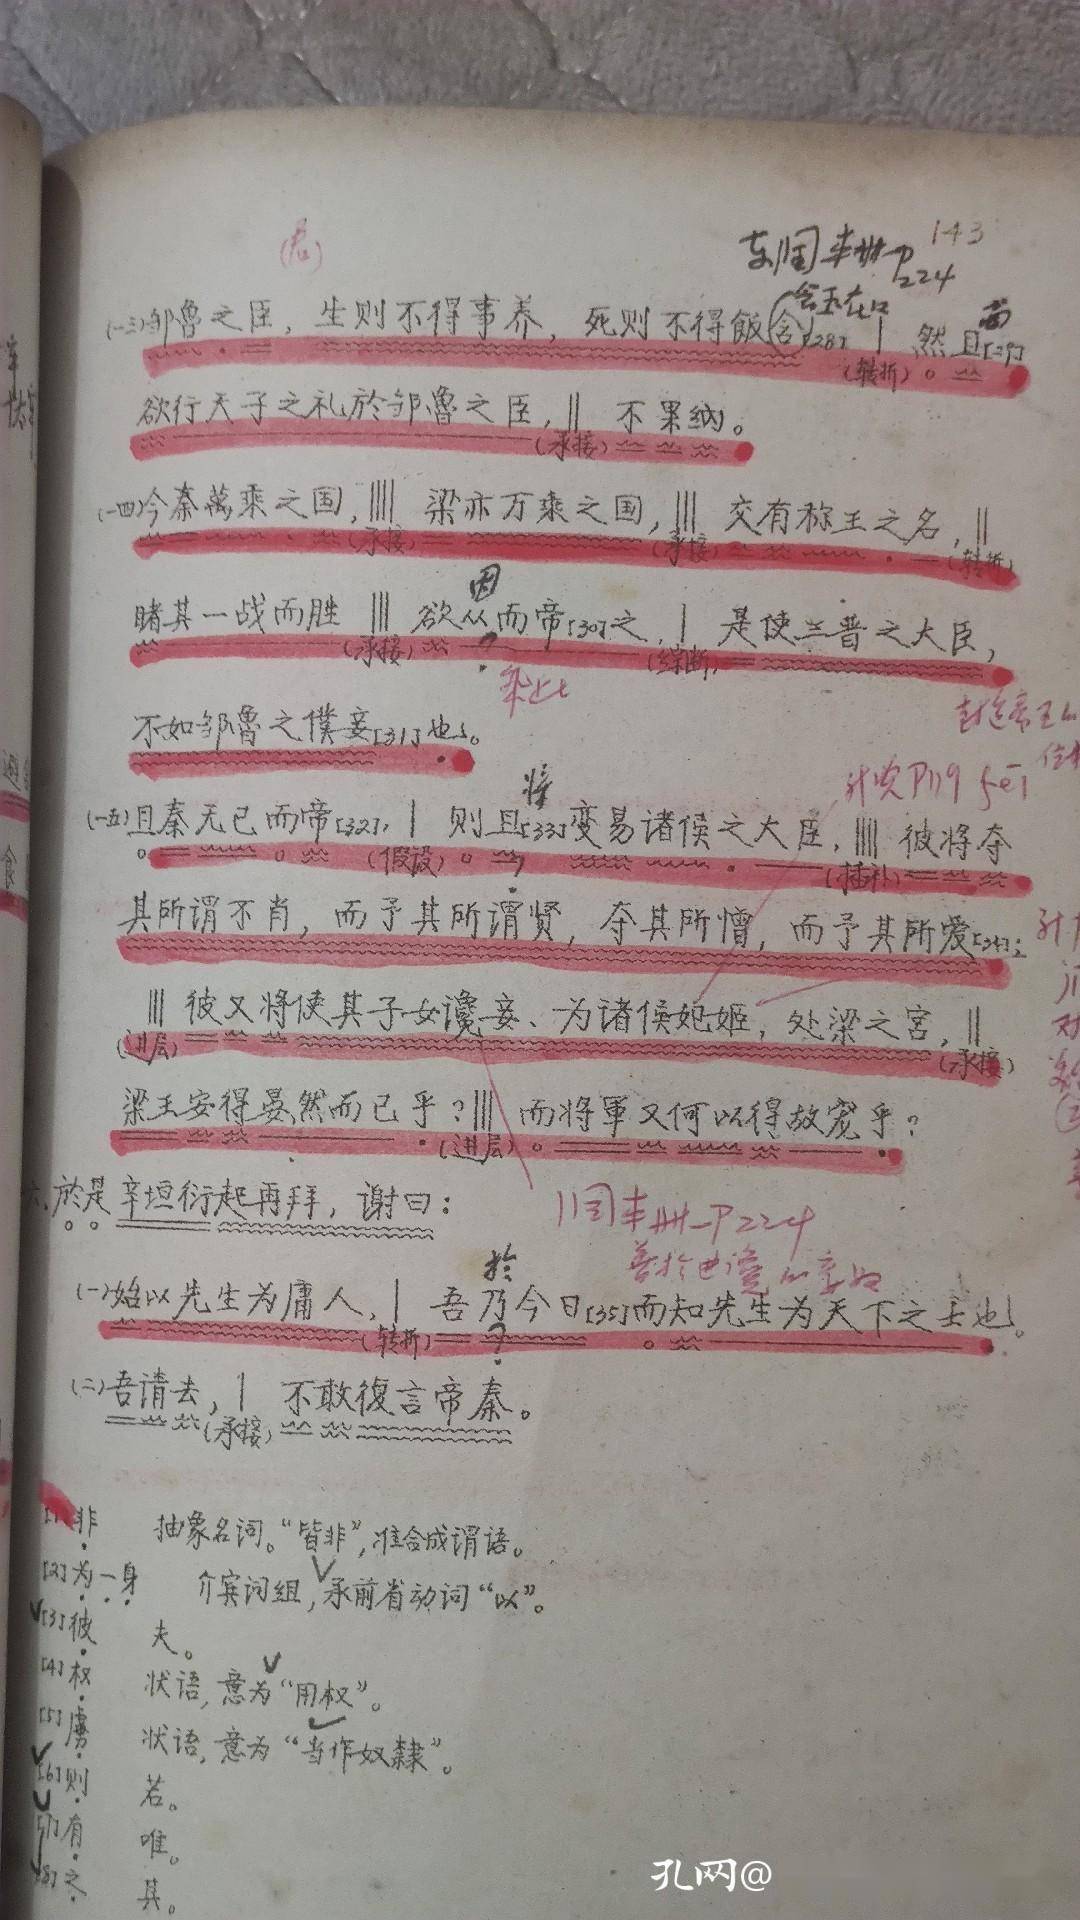 143
P224
(君)
含玉在口
而
(一三)邹魯之臣，生则不得事养，死则不得飯含[28]，| 然且[29]
(转折)
欲行天子之礼於邹魯之臣，|| 不果纳。
(承接)
(一四)今秦萬乘之国，|||| 梁亦万乘之国，||| 交有称王之名，||
(承接) (承接) (转折)
因
睹其一战而胜 ||| 欲从而帝[30]之，| 是使三晋之大臣，
(承接) (综断)
不如邹魯之僕妾[31]也。
将
(一五)且秦无已而帝[32]，| 则且[33]变易诸侯之大臣，|||| 彼将夺
(假设) (插补)
其所谓不肖，而予其所谓贤，夺其所憎，而予其所爱[34]；
||| 彼又将使其子女谗妾、为诸侯妃姬，处梁之宫，||
(进层) (承接)
梁王安得晏然而已乎？||| 而将軍又何以得故宠乎？
(进层)
六、於是辛垣衍起再拜，谢曰：
P224
於
(一)始以先生为庸人，| 吾乃今日[35]而知先生为天下之士也。
(转折)
(二)吾请去，| 不敢復言帝秦。
(承接)
[1]非 抽象名词。“皆非”，准合成谓语。
[2]为一身 介宾词组，承前省动词“以”。
[3]彼 夫。
[4]权 状语，意为“用权”。
[5]虏 状语，意为“当作奴隸”。
[6]则 若。
[7]有 唯。
[8]之 其。
孔网@